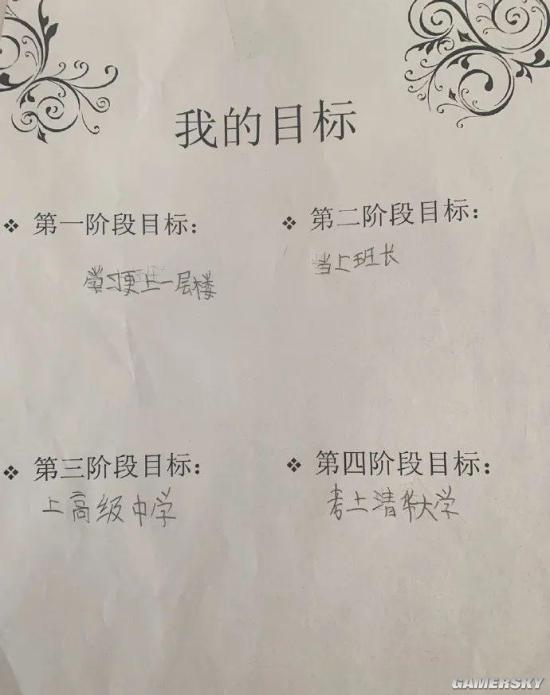 我的目标
❖ 第一阶段目标：
学习更上一层楼
❖ 第二阶段目标：
当上班长
❖ 第三阶段目标：
上高级中学
❖ 第四阶段目标：
考上清华大学
GAMERSKY